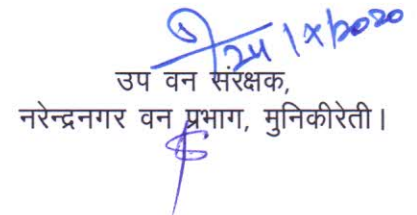 24/X/2020
उप वन संरक्षक,
नरेन्द्रनगर वन प्रभाग, मुनिकीरेती।